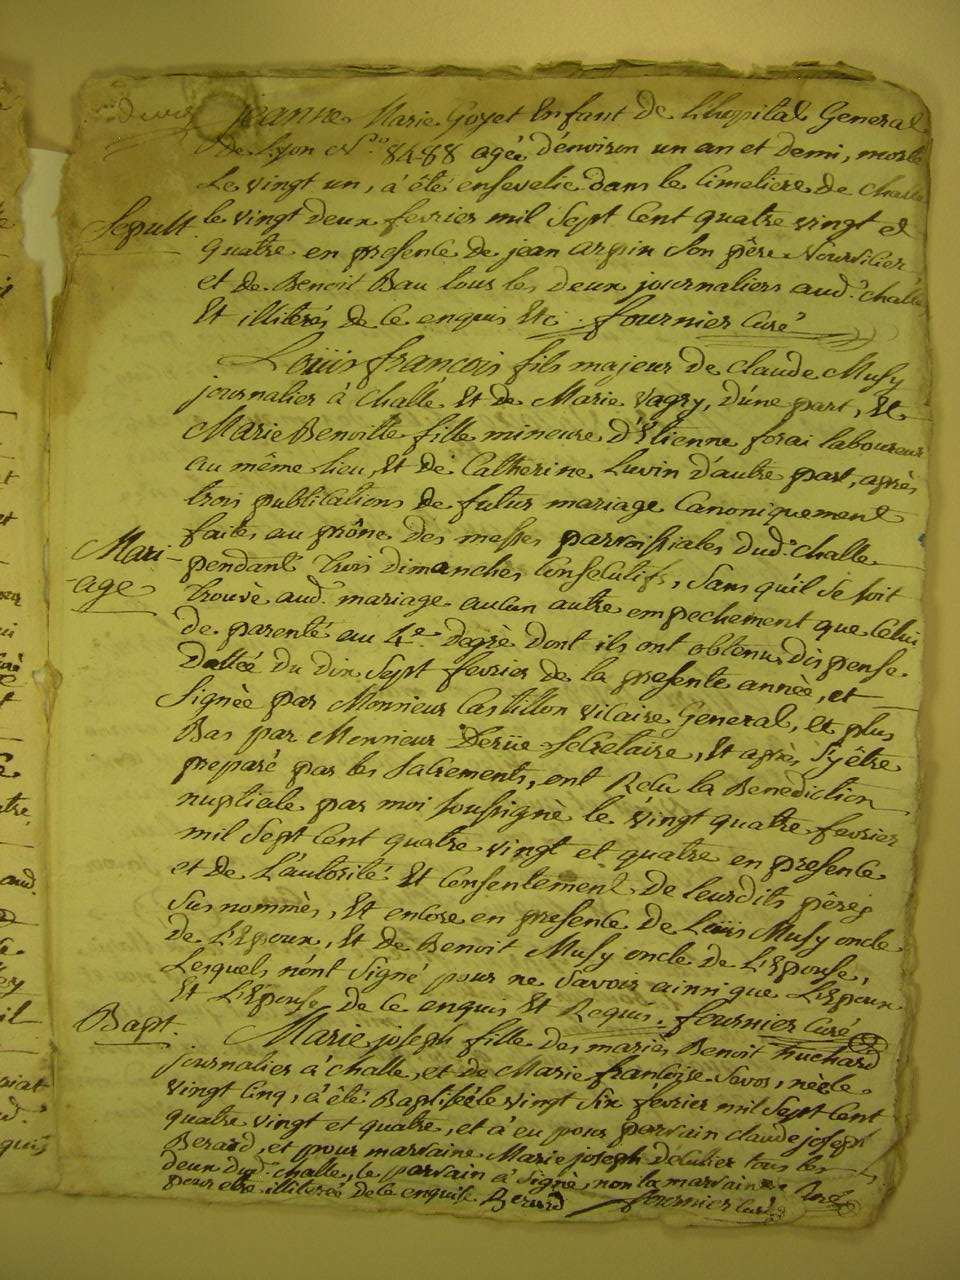 Jeanne Marie Goyet Enfant de L'hopital General
de Lyon N.º 8488 agée d'environ un an et demi, morte
Le vingt un, à été ensevelie dans le Cimetiere de Challe
Sepult. le vingt deux fevrier mil Sept Cent quatre vingt et
quatre en presence de jean arpin Son père Nourricier
et de Benoit Bau tous les deux journaliers aud.t challe
Et illiterés de Ce enquis Etc. fournier Curé
Loüis françois fils majeur de Claude Musy
journalier à Challe Et de Marie Vagry, d'une part, Et
Marie Benoitte fille mineure d'Etienne forai laboureur
au même Lieu Et de Catherine Luvin d'autre part, après
trois publications de futur mariage Canoniquement
faites au prône des messes parroissiales dud.t challe
Mari- pendant trois dimanches Consecutifs, Sans qu'il Se soit
-age trouvé aud.t mariage aucun autre empechement que Celui
de parenté au 4.e degré dont ils ont obtenu dispense.
Dattée du dix Sept fevrier de la presente année, et
Signée par Monsieur Castillon Vicaire General, et plus
Bas par Monsieur Secretaire, Et après S'y être
preparé par les Sacrements, ont Reçu la Benediction
nuptiale par moi Soussigné le vingt quatre fevrier
mil Sept Cent quatre vingt et quatre en presence
et de L'autorité Et Consentement de leurdits pères
Sus nommés, Et encore en presence de Loüis Musy oncle
de L'Epoux, Et de Benoit Musy oncle de L'Epouse,
Lesquels n'ont Signé pour ne Savoir ainsi que L'Epoux
Et L'Epouse de Ce enquis Et Requis. fournier Curé
Bapt. Marie joseph fille des mariés Benoit huchard
journalier à challe, et de Marie françoise Savos, née le
vingt Cinq, à été Baptisée le vingt Six fevrier mil Sept Cent
quatre vingt et quatre, et à eu pour parrain claude joseph
Berard, et pour marraine Marie joseph tous les
deux dud.t challe, le parrain à Signé, non la marraine
pour etre illiterée de Ce enquise Berard fournier Curé